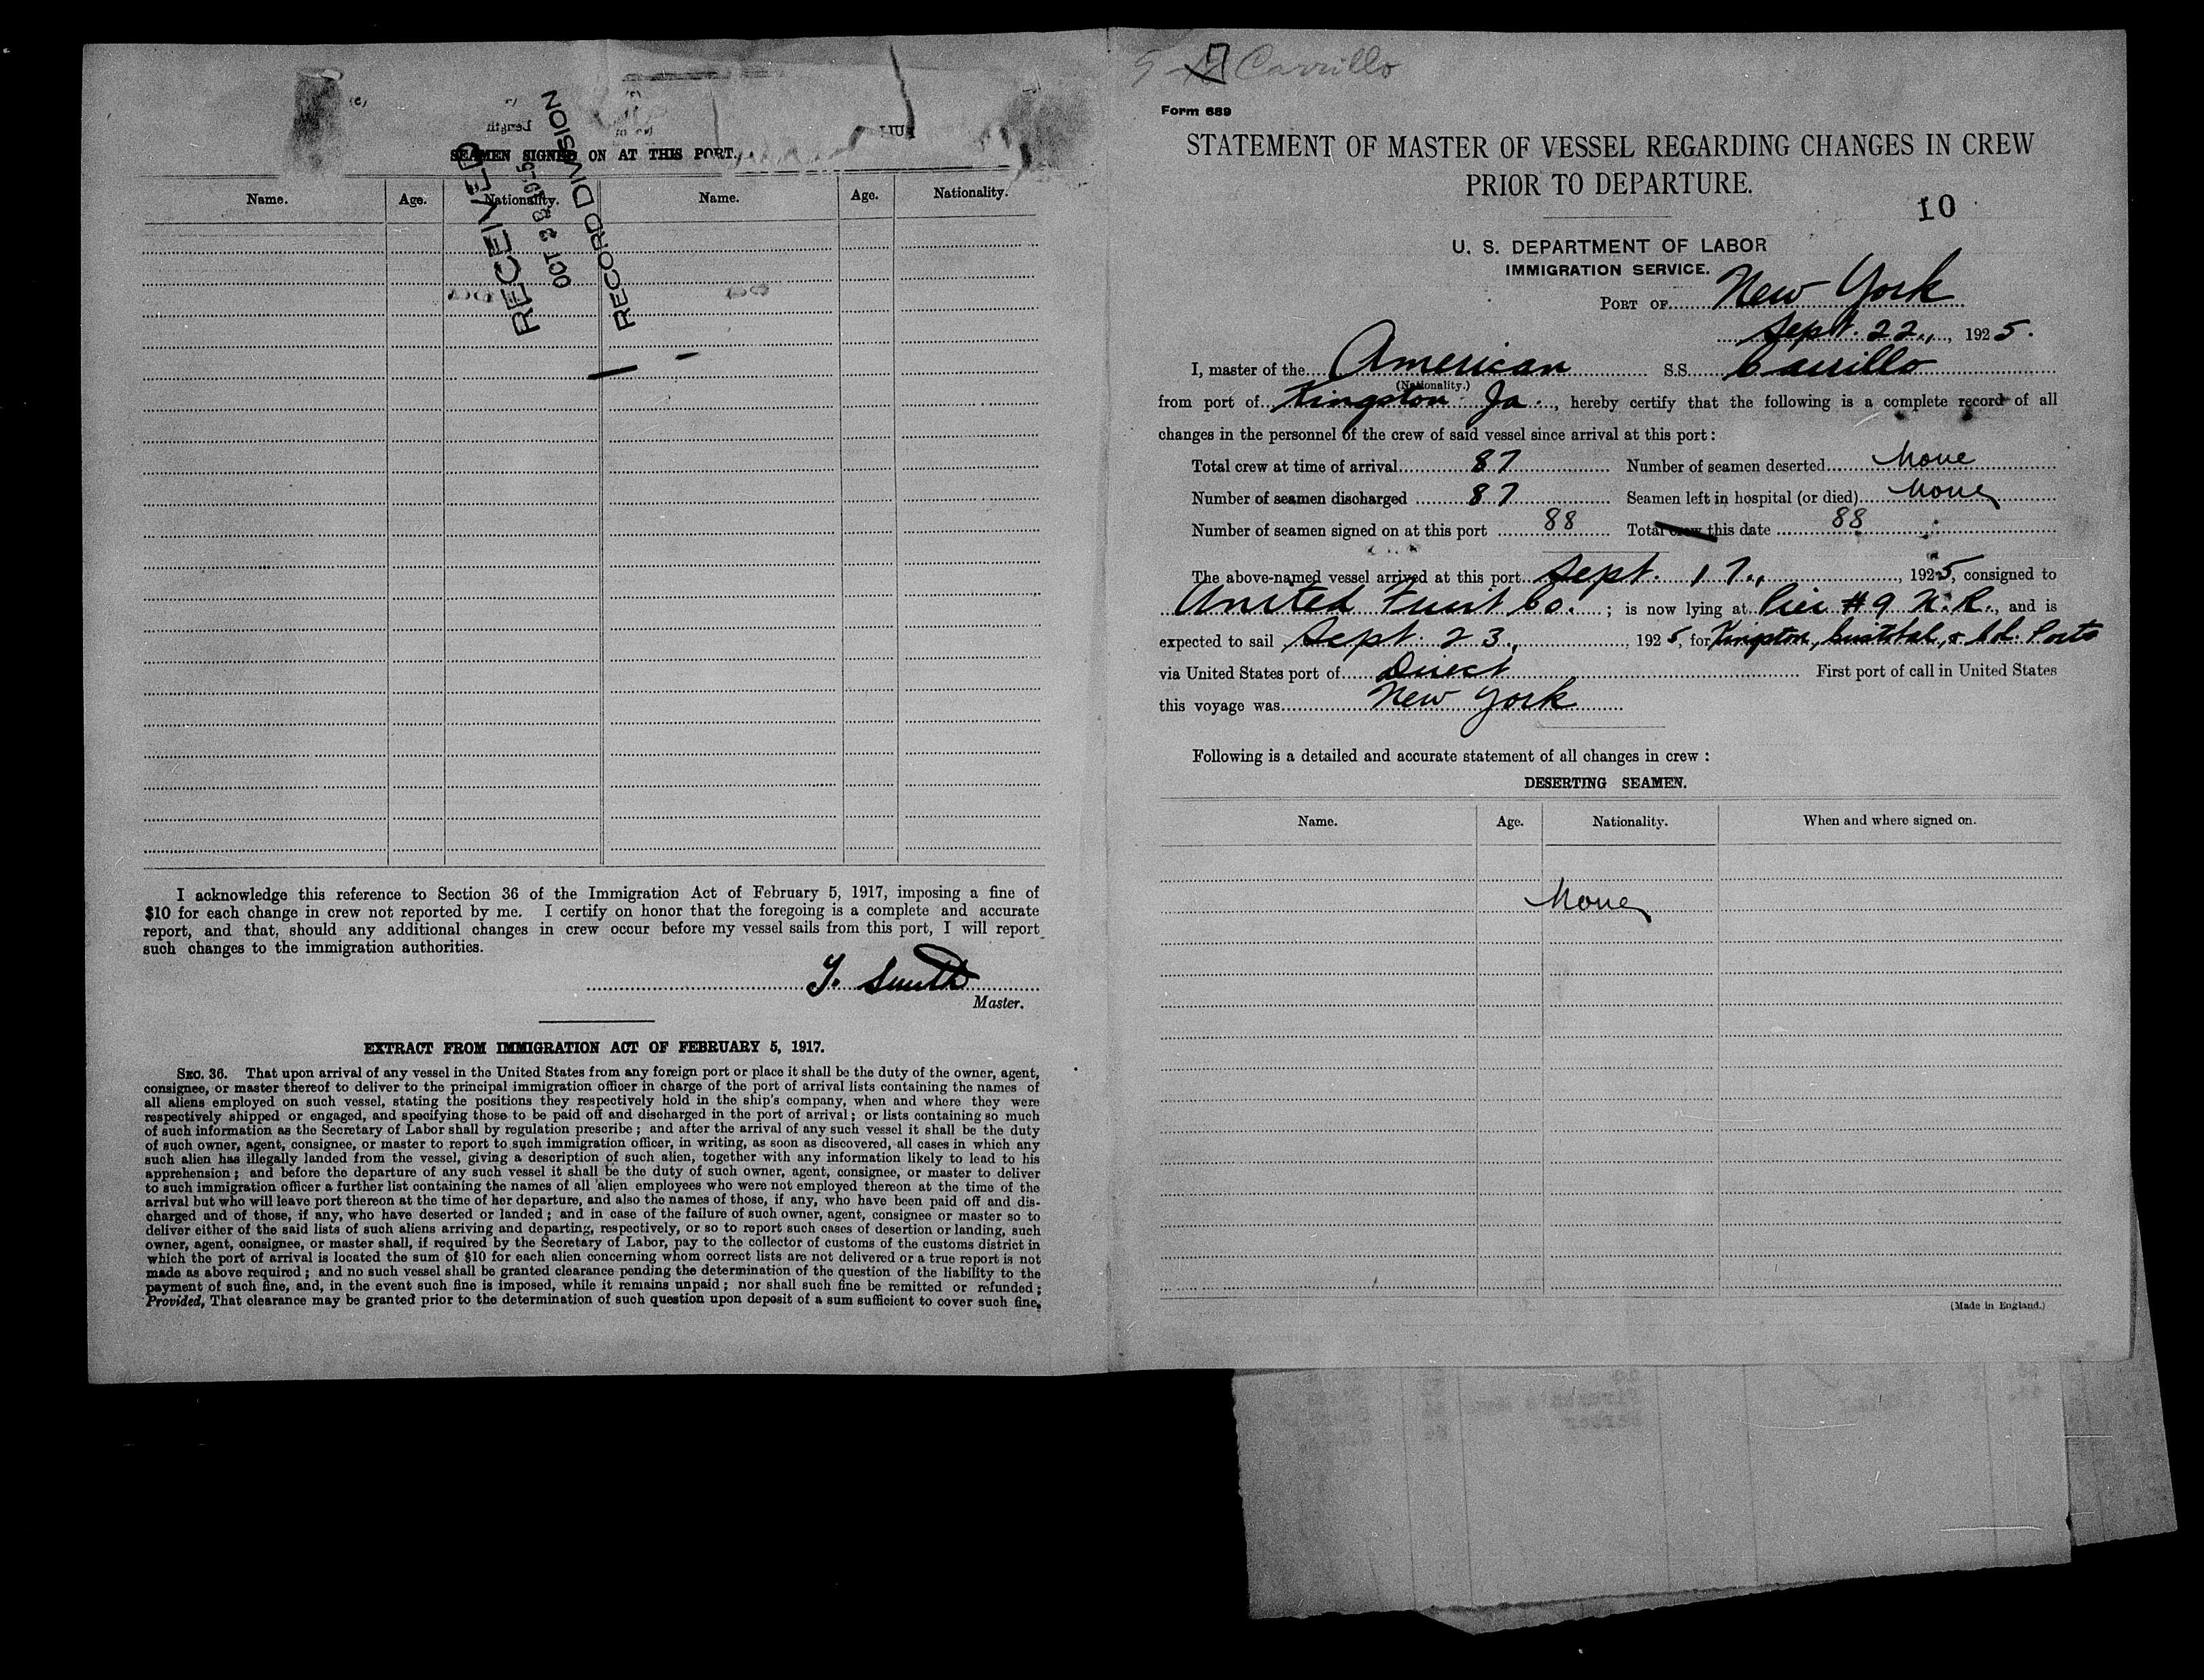 SEAMEN SIGNED ON AT THIS PORT.
Name. Age. Nationality. Name. Age. Nationality.
RECEIVED
OCT 23 1925
RECORD DIVISION
I acknowledge this reference to Section 36 of the Immigration Act of February 5, 1917, imposing a fine of
$10 for each change in crew not reported by me. I certify on honor that the foregoing is a complete and accurate
report, and that, should any additional changes in crew occur before my vessel sails from this port, I will report
such changes to the immigration authorities.
Smith
Master.
EXTRACT FROM IMMIGRATION ACT OF FEBRUARY 5, 1917.
SEC. 36. That upon arrival of any vessel in the United States from any foreign port or place it shall be the duty of the owner, agent,
consignee, or master thereof to deliver to the principal immigration officer in charge of the port of arrival lists containing the names of
all aliens employed on such vessel, stating the positions they respectively hold in the ship's company, when and where they were
respectively shipped or engaged, and specifying those to be paid off and discharged in the port of arrival; or lists containing so much
of such information as the Secretary of Labor shall by regulation prescribe; and after the arrival of any such vessel it shall be the duty
of such owner, agent, consignee, or master to report to such immigration officer, in writing, as soon as discovered, all cases in which any
such alien has illegally landed from the vessel, giving a description of such alien, together with any information likely to lead to his
apprehension; and before the departure of any such vessel it shall be the duty of such owner, agent, consignee, or master to deliver
to such immigration officer a further list containing the names of all alien employees who were not employed thereon at the time of the
arrival but who will leave port thereon at the time of her departure, and also the names of those, if any, who have been paid off and dis-
charged and of those, if any, who have deserted or landed; and in case of the failure of such owner, agent, consignee or master so to
deliver either of the said lists of such aliens arriving and departing, respectively, or so to report such cases of desertion or landing, such
owner, agent, consignee, or master shall, if required by the Secretary of Labor, pay to the collector of customs of the customs district in
which the port of arrival is located the sum of $10 for each alien concerning whom correct lists are not delivered or a true report is not
made as above required; and no such vessel shall be granted clearance pending the determination of the question of the liability to the
payment of such fine, and, in the event such fine is imposed, while it remains unpaid; nor shall such fine be remitted or refunded;
Provided, That clearance may be granted prior to the determination of such question upon deposit of a sum sufficient to cover such fine.
Carrillo
Form 689
STATEMENT OF MASTER OF VESSEL REGARDING CHANGES IN CREW
PRIOR TO DEPARTURE.
10
U. S. DEPARTMENT OF LABOR
IMMIGRATION SERVICE.
PORT OF New York
Sept. 22, 1925.
I, master of the American S.S. Carrillo
(Nationality.)
from port of Kingston Ja., hereby certify that the following is a complete record of all
changes in the personnel of the crew of said vessel since arrival at this port:
Total crew at time of arrival 87 Number of seamen deserted None
Number of seamen discharged 87 Seamen left in hospital (or died) None
Number of seamen signed on at this port 88 Total crew this date 88
The above-named vessel arrived at this port Sept. 17, 1925, consigned to
United Fruit Co.; is now lying at Pier #9 N.R., and is
expected to sail Sept. 23, 1925, for Kingston, Cristobal, & Col. Ports
via United States port of Direct First port of call in United States
this voyage was New York
Following is a detailed and accurate statement of all changes in crew:
DESERTING SEAMEN.
Name. Age. Nationality. When and where signed on.
None
(Made in England.)